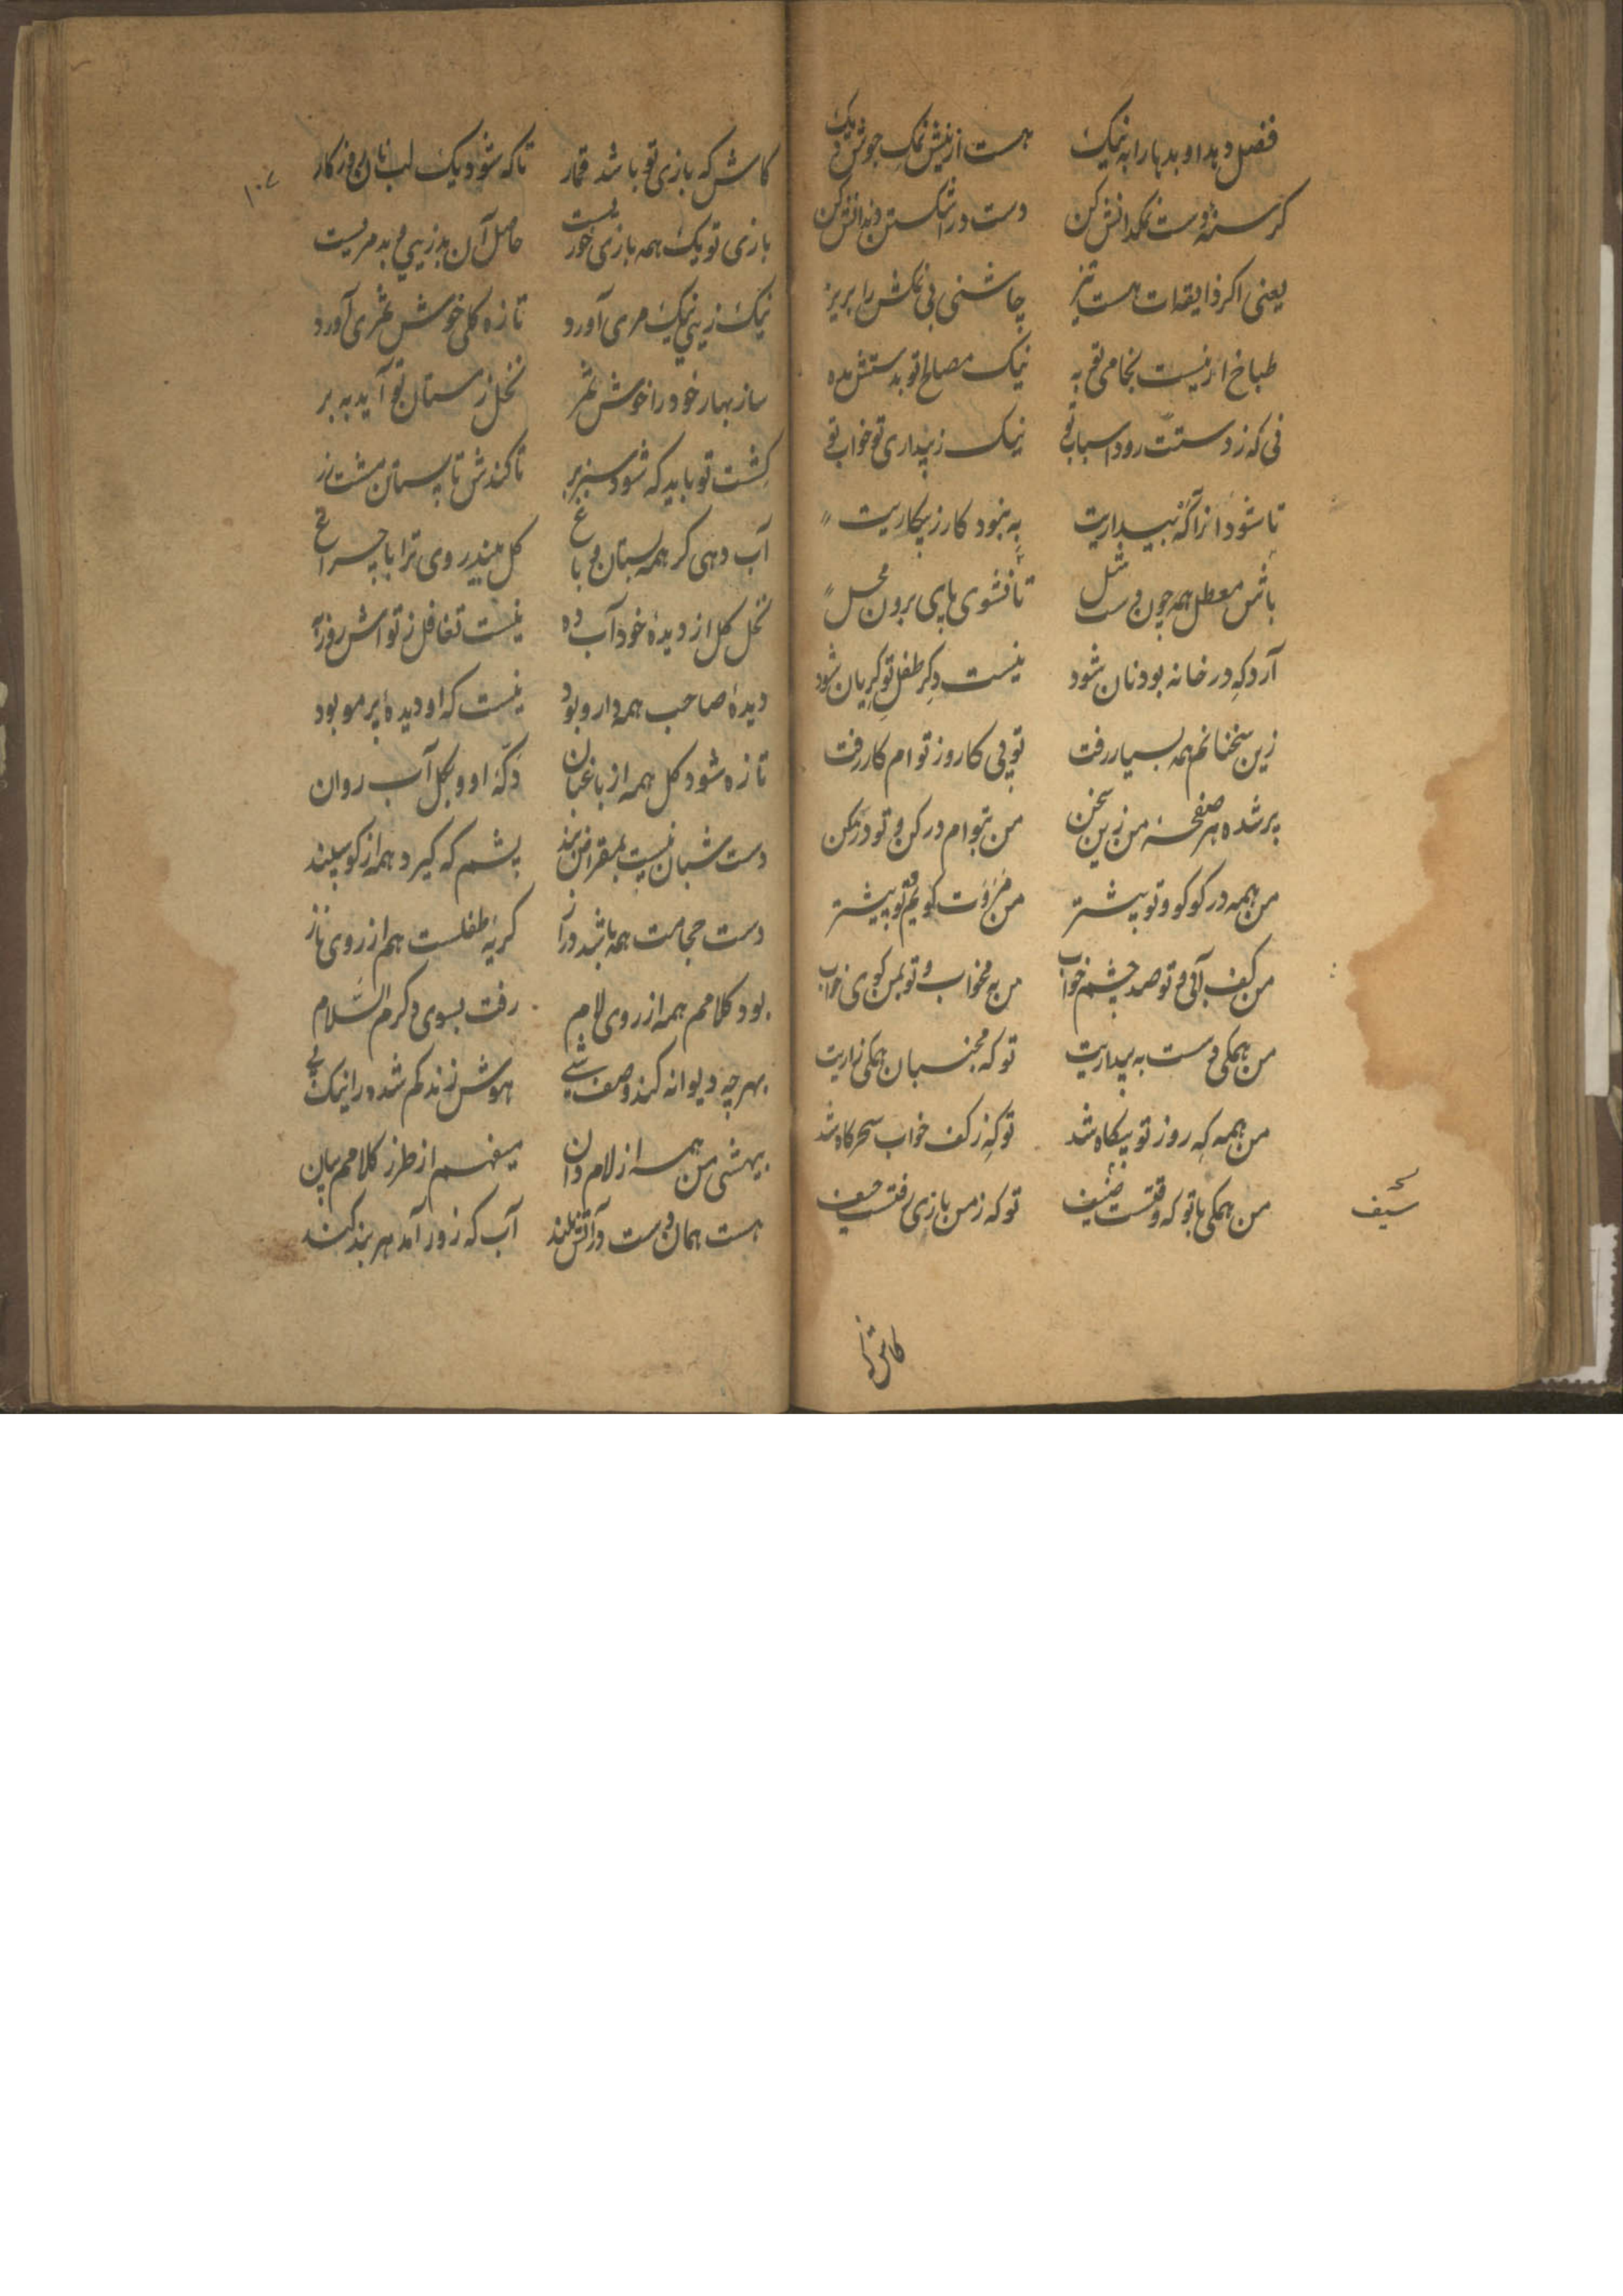 فصل دهد او بدها را به نمیک هست از نیش نمک جوش دیک
کرسنهٔ دست نمکدانش کن دست در اشکستن دندانش کن
یعنی اکر ذایقه‌ات هست تیز چاشنی بی نمکش را بریز
طباخ ار نیست بخامی تو به نیک مصالح تو بدستش مده
نی که ز دستت رود اسباب تو نیک ز بیداری تو خواب تو
تا شود از آنکه ببیداریت به نبود کار ز بیکاریت
باش معطل همه چون دست شل تا نشوی پای برون محل
آرد که در خانه بود نان شود نیست دکر طفل تو کریان شود
زین سخنانم همه بسیار رفت تو پی کار و ز توام کار رفت
پر شده هر صفحهٔ من زین سخن من بتوام در کن و تو در مکن
من همه در کوکو و تو بیشتر من ز مروت کویم و تو بیشتر
من بکف آبی و تو صد چشم خواب من به مخواب و تو بمن کوی خواب
من همکی دست به بیداریت تو که بجنبان همکی زاریت
من همه که روز تو بیکاه شد تو که ز کف خواب سحرکاه شد
من همکی با تو که وقتست ضیف تو که ز من بازی رفتست حیف
سیف
کاش که
۱۰۷
کاش که بازی تو باشد قمار تا که شود یک لب نان روزکار
بازی تو یک همه بازی خوریست حاصل آن بد زیبی و بد مریست
نیک زیی نیک مری آورد تازه کلی خوش ثمری آورد
ساز بهار خود را خوش ثمر نخل زمستان تو آید به بر
کشت تو باید که شود سبزبر تا کندش تابستان مشت زر
آب دهی کر همه بستان و باغ کل بیند روی ترا با چراغ
نخل کل از دیدهٔ خود آب ده نیست تغافل ز تواش روز به
دیدهٔ صاحب همه دارو بود نیست که او دیدهٔ پر مو بود
تازه شود کل همه از باغبان دکهٔ او و بکل آب روان
دست شبان نیست بمقراض بند پشم که کیرد همه از کوسپند
دست حجامت همه باشد دراز کریهٔ طفلست هم از روی ناز
بود کلامم همه از روی لام رفت بسوی دکرم السلام
بهر چه دیوانه کند وصف شی هوش زند کم شده را نیک پی
بیهشی من همه از لام دان میفهم از طرز کلامم بیان
هست همان دست در آتش بلند آب که زور آمد هر بند کند